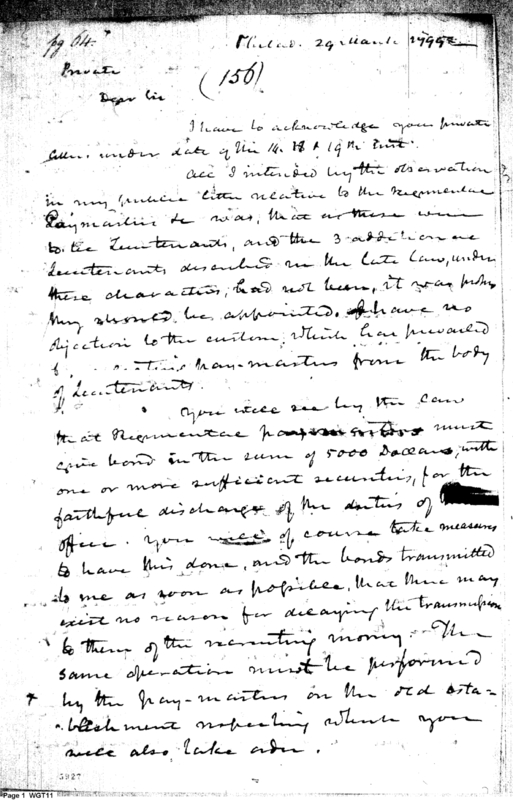 pg 64.
Philad. 29 March 1799
Private
(156)
Dear Sir
I have to acknowledge your private
letters under date of the 14. 18 & 19th Inst.
All I intended by the observation
in my public letter relative to the Regimental
Paymasters &c was, that as these were
to be Lieutenants, and the 3 additional
Lieutenants described in the late law, under
these characters, had not been, it was proper
they should be appointed. I have no
objection to the custom, which has prevailed
pay-masters from the body
of Lieutenants.
You will see by the law
that Regimental paymasters must
give bond in the sum of 5000 Dollars, with
one or more sufficient securities, for the
faithful discharge of the duties of
office. You will of course take measures
to have this done, and the bonds transmitted
to me as soon as possible, that there may
exist no reason for delaying the transmission
to them of the recruiting money. The
same operation must be performed
by the pay-masters on the old esta-
blishment respecting which you
will also, take order.
5927
Page 1 WGT11